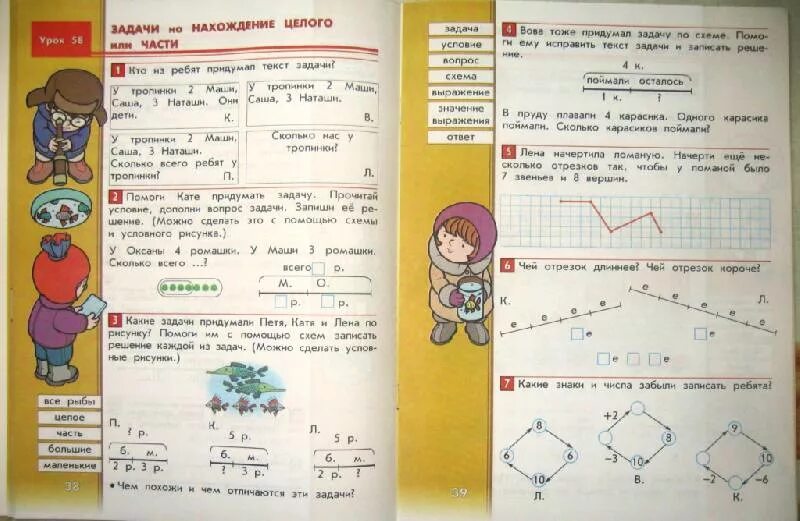 Урок 58
ЗАДАЧИ на НАХОЖДЕНИЕ ЦЕЛОГО
или ЧАСТИ
1 Кто из ребят придумал текст задачи?
У тропинки 2 Маши,
Саша, 3 Наташи. Они
дети. К.
У тропинки 2 Маши,
Саша, 3 Наташи.
В.
У тропинки 2 Маши,
Саша, 3 Наташи.
Сколько всего ребят у
тропинки? П.
Сколько нас у
тропинки?
Л.
2 Помоги Кате придумать задачу. Прочитай
условие, дополни вопрос задачи. Запиши её ре-
шение. (Можно сделать это с помощью схемы
и условного рисунка.)
У Оксаны 4 ромашки. У Маши 3 ромашки.
Сколько всего ...?
всего р.
М. О.
р. р.
3 Какие задачи придумали Петя, Катя и Лена по
рисунку? Помоги им с помощью схем записать
решение каждой из задач. (Можно сделать услов-
ные рисунки.)
все рыбы
целое
часть
большие
маленькие
П. К. Л.
? р. 5 р. 5 р.
б. м. б. м. б. м.
2 р. 3 р. ? 3 р. 2 р. ?
• Чем похожи и чем отличаются эти задачи?
38
задача
условие
вопрос
схема
выражение
значение
выражения
ответ
4 Вова тоже придумал задачу по схеме. Помо-
ги ему исправить текст задачи и записать реше-
ние.
4 к.
поймали осталось
1 к. ?
В пруду плавали 4 карасика. Одного карасика
поймали. Сколько карасиков поймали?
5 Лена начертила ломаную. Начерти ещё не-
сколько отрезков так, чтобы у ломаной было
7 звеньев и 8 вершин.
6 Чей отрезок длиннее? Чей отрезок короче?
К. Л.
е е е е е
е е е е
е е
е
7 Какие знаки и числа забыли записать ребята?
8 +2 9
6 6 8 10
10 −3 10 −2 −6
Л. В. К.
39